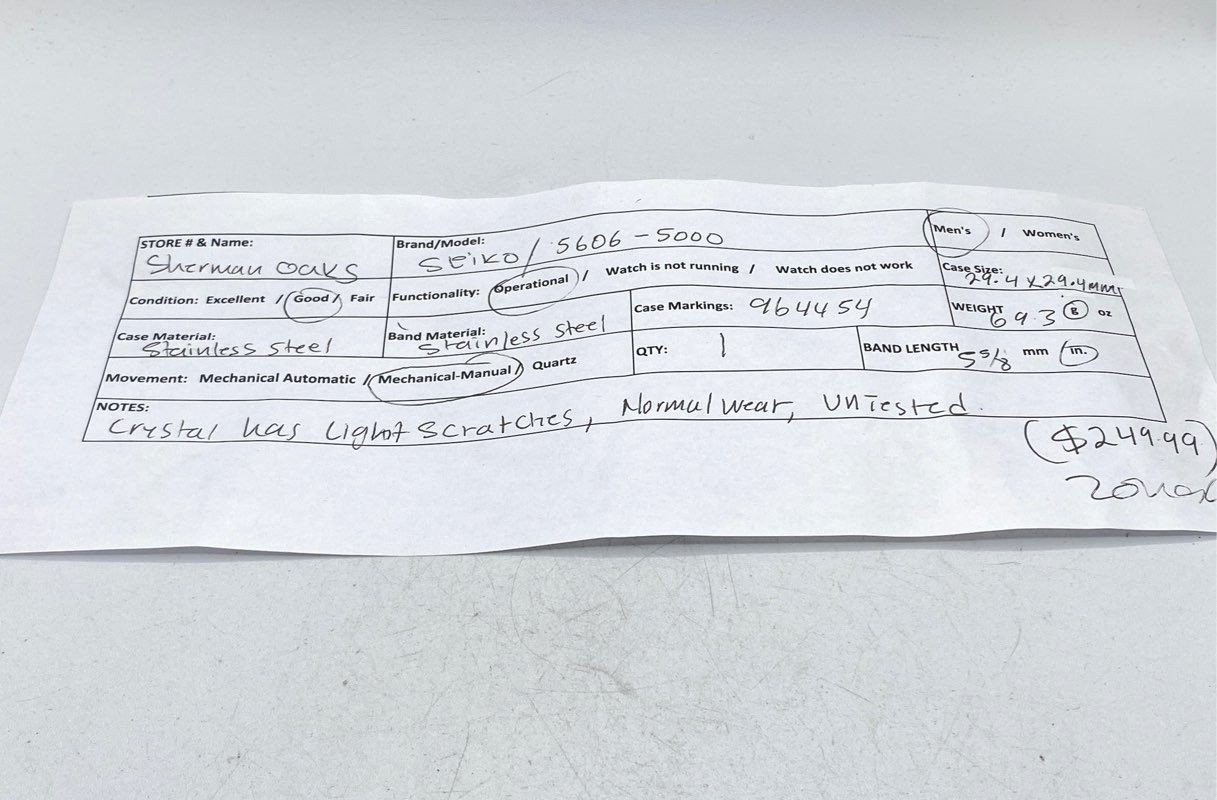 STORE # & Name: Sherman Oaks
Brand/Model: SEIKO / 5606-5000
Men's / Women's
Condition: Excellent / Good / Fair
Functionality: Operational / Watch is not running / Watch does not work
Case Size: 29.4 x 29.4mm
Case Material: Stainless steel
Band Material: Stainless steel
Case Markings: 964454
WEIGHT 69.3 g oz
Movement: Mechanical Automatic / Mechanical-Manual / Quartz
QTY: 1
BAND LENGTH 5 5/8 mm in.
NOTES: Crystal has Light Scratches, Normal wear, UNTested.
($249.99)